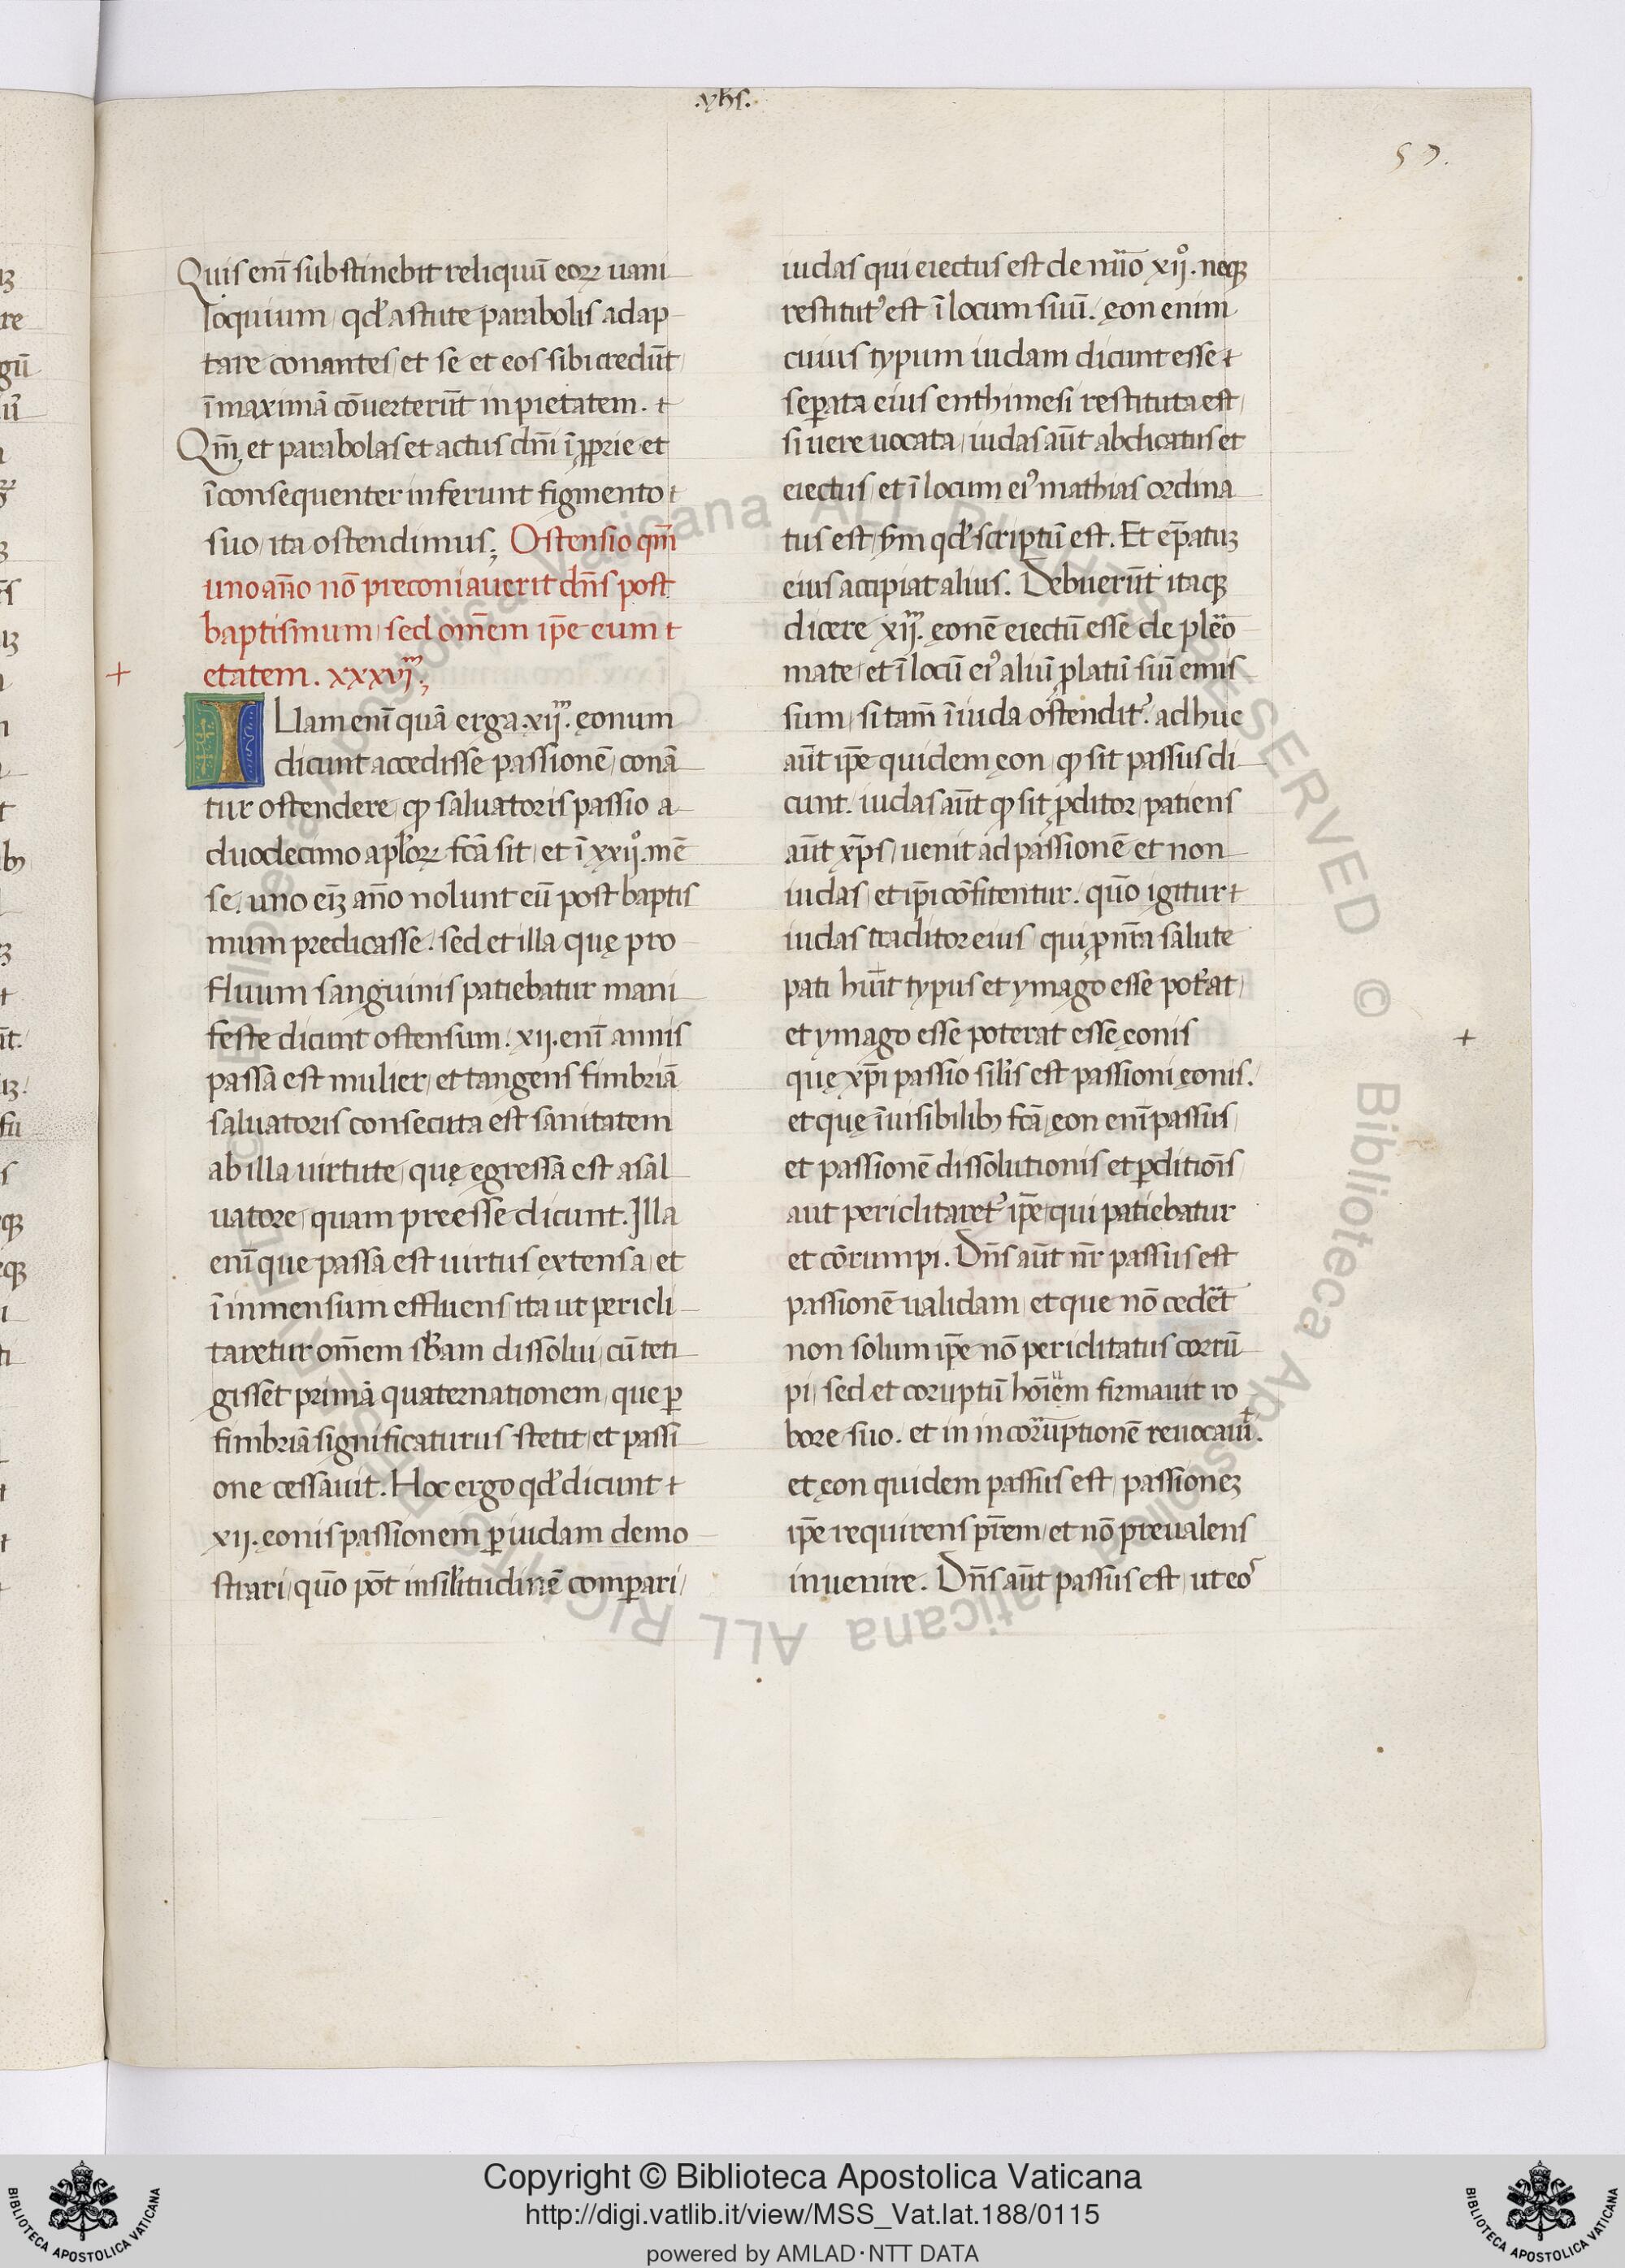 .yhs.
57.
Quis eni̅ substinebit reliquu̅ eoꝝ uani
loquium, qd̓ astute parabolis adap
tare conantes, et se et eos sibi credu̅t
i̅ maxima̅ co̅uerteru̅t inpietatem.
Qm̅, et parabolas et actus dn̅i i̅p̱prie et
i̅consequenter inferunt figmento
suo, ita ostendimus; Ostensio qm̅
uno an̅o no̅ preconiauerit dn̅s post
baptismum, sed om̅em ip̅e eum
+ etatem. xxxvij.;
ILlam eni̅ qua̅ erga. xij. ęonum
dicunt accedisse passione̅, cona̅
tur ostendere, ꝙ saluatoris passio a
duodecimo apl̓oꝝ fca̅ sit, et i̅ xxij°. me̅
se. uno ei̅ꝫ an̅o nolunt eu̅ post baptis
mum predicasse. sed et illa quę pro
fluum sanguinis patiebatur mani
feste dicunt ostensum. xij. eni̅ annis
passa est mulier, et tangens fimbria̅
saluatoris consecuta est sanitatem
ab illa uirtute, quę egressa est a sal
uatore, quam preesse dicunt. Illa
eni̅ que passa est uirtus extensa, et
i̅ inmensum effluens, ita ut pericli
taretur om̅em sb̅am dissolui, cu̅ teti
gisset prima̅ quaternationem, que ꝑ
fimbria̅ significaturus stetit, et passi
one cessauit. Hoc ergo qd̓ dicunt
xij. ęonis passionem ꝑ iudam demo
strari, quo̅ po̅t in sil̓itudine̅ comꝑari,
iudas qui eiectus est de nu̅o xij°. neqꝫ
restitut᾿ est i̅ locum suu̅. ęon enim
cuius typum iudam dicunt esse
seꝑata eius enthimesi restituta est,
si uere uocata, iudas au̅t abdicatus et
eiectus, et i̅ locum ei᾿ mathias ordina
tus est, sm̅ qd̓ scriptu̅ est. Et ep̅atuꝫ
eius accipiat alius. Debueru̅t itaqꝫ
dicere xij. ęone̅ eiectu̅ esse de pleo
mate, et i̅ locu̅ ei᾿ aliu̅ ꝓlatu̅ siu̅ emis
sum, si tam̅ i̅ iuda ostendit᾿. ad huc
au̅t ip̅e quidem ęon, ꝙ sit passus di
cunt. iudas au̅t ꝙ sit ꝓditor, patiens
au̅t xp̅s, uenit ad passione̅ et non
iudas, et ip̅i co̅fitentur. quo̅ igitur
iudas traditor eius, qui ꝓ nr̅a salute
pati hu̅it typus et ymago esse pot̓at,
+ et ymago esse poterat esse ęonis
quę xp̅i passio sil̓is est passioni ęonis.
et quę i̅uisibilibꝫ fca̅, ęon eni̅ passus,
et passione̅ dissolutionis et ꝑditio̅is,
aut periclitaret᾿ ip̅e, qui patiebatur
et co̅rumpi. Dn̅s au̅t nr̅ passus est
passione̅ ualidam, et que no̅ cede̅t
non solum ip̅e no̅ periclitatus corru̅
pi, sed et coruptu̅ ho̅i̅em firmauit ro
bore suo. et in incoruptione̅ reuocaui̅t.
et ęon quidem passus est, passioneꝫ
ip̅e requirens pr̅em, et no̅ preualens
inuenire. Dn̅s au̅t passus est, ut eos
Copyright © Biblioteca Apostolica Vaticana
http://digi.vatlib.it/view/MSS_Vat.lat.188/0115
powered by AMLAD·NTT DATA
BIBLIOTECA APOSTOLICA VATICANA
BIBLIOTECA APOSTOLICA VATICANA